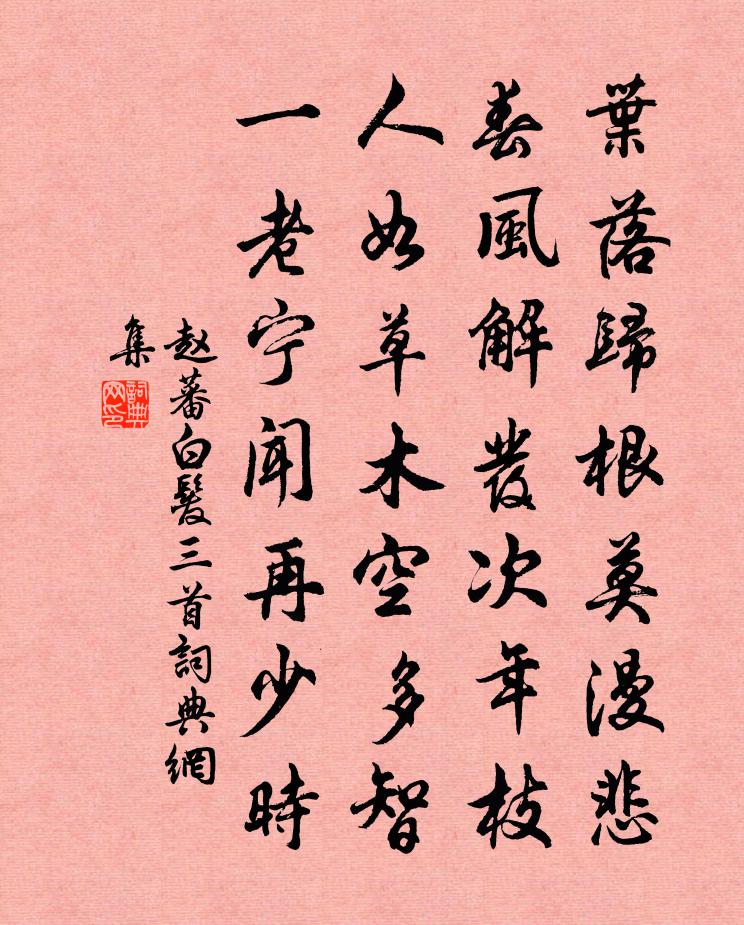 葉落歸根莫漫悲
春風解發次年枝
人如草木空多智
一老宁聞再少時
赵蕃白髮三首詞典網
集
詞典网印